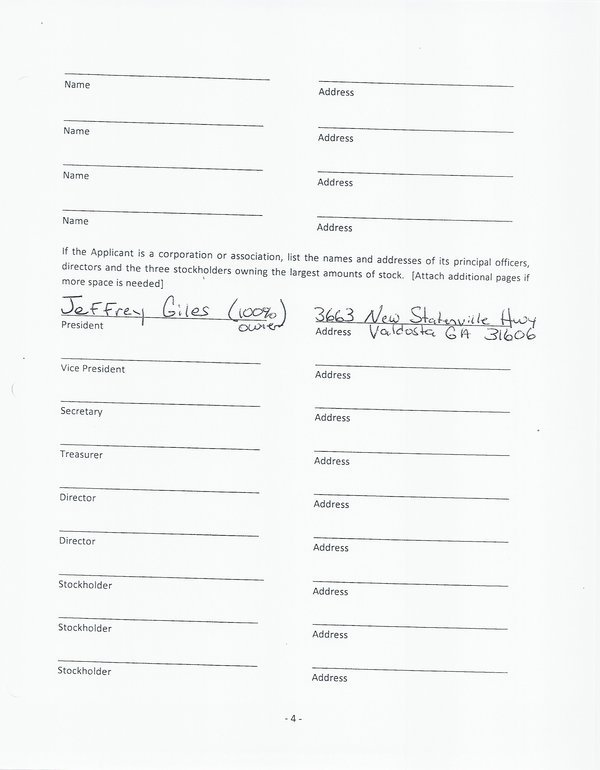 Name Address
Name Address
Name Address
Name Address
If the Applicant is a corporation or association, list the names and addresses of its principal officers,
directors and the three stockholders owning the largest amounts of stock. [Attach additional pages if
more space is needed]
Jeffrey Giles (100% 3663 New Statenville Hwy
President owner Address Valdosta GA 31606
Vice President Address
Secretary Address
Treasurer Address
Director Address
Director Address
Stockholder Address
Stockholder Address
Stockholder Address
- 4 -